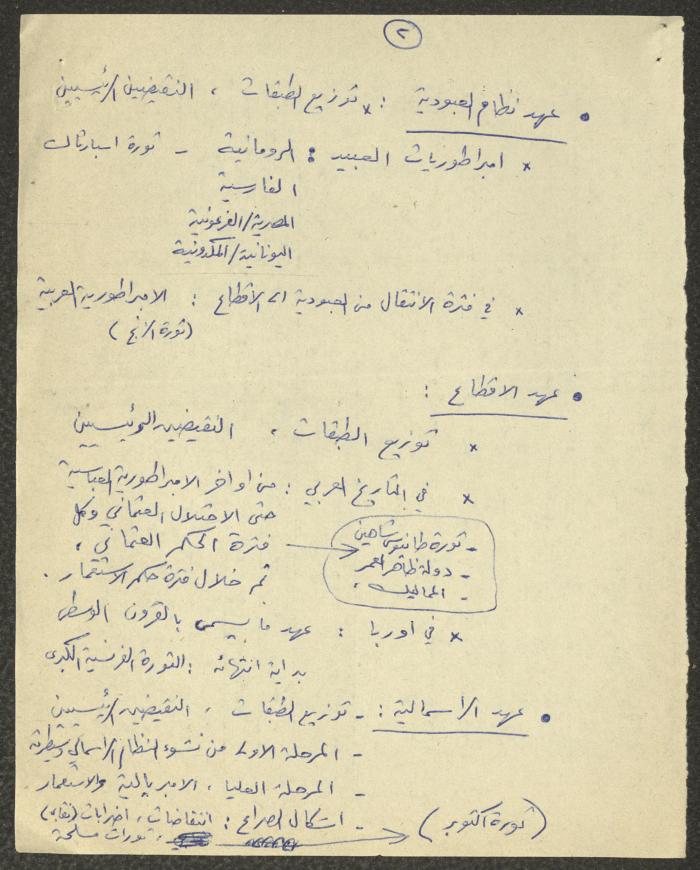 ٢
• عهد نظام العبودية : × توزيع الطبقات ، النقيضين الرئيسيين
× امبراطوريات العبيد : الرومانية - ثورة اسبارتاك
الفارسية
المصرية/الفرعونية
اليونانية/المكدونية
× في فترة الانتقال من العبودية الى الأقطاع : الامبراطورية العربية
(ثورة الزنج)
• عهد الاقطاع :
× توزيع الطبقات ، النقيضين الرئيسيين
× في التاريخ العربي : من اواخر الامبراطورية العباسية
حتى الاحتلال العثماني وكل
فترة الحكم العثماني ،
ثم خلال فترة حكم الاستعمار .
- ثورة طانيوس شاهين
- دولة ظاهر العمر
- المماليك .
× في اوربا : عهد ما يسمى بالقرون الوسطى
بداية انتهائه : الثورة الفرنسية الكبرى
• عهد الرأسمالية : - توزيع الطبقات ، النقيضين الرئيسيين
- المرحلة الاولى من نشوء النظام الرأسمالي وسيطرته
- المرحلة العليا ، الامبريالية والاستعمار
- اشكال الصراع : انتفاضات ، اضرابات (نقابات)
، ثورات مسلحة
(ثورة اكتوبر)